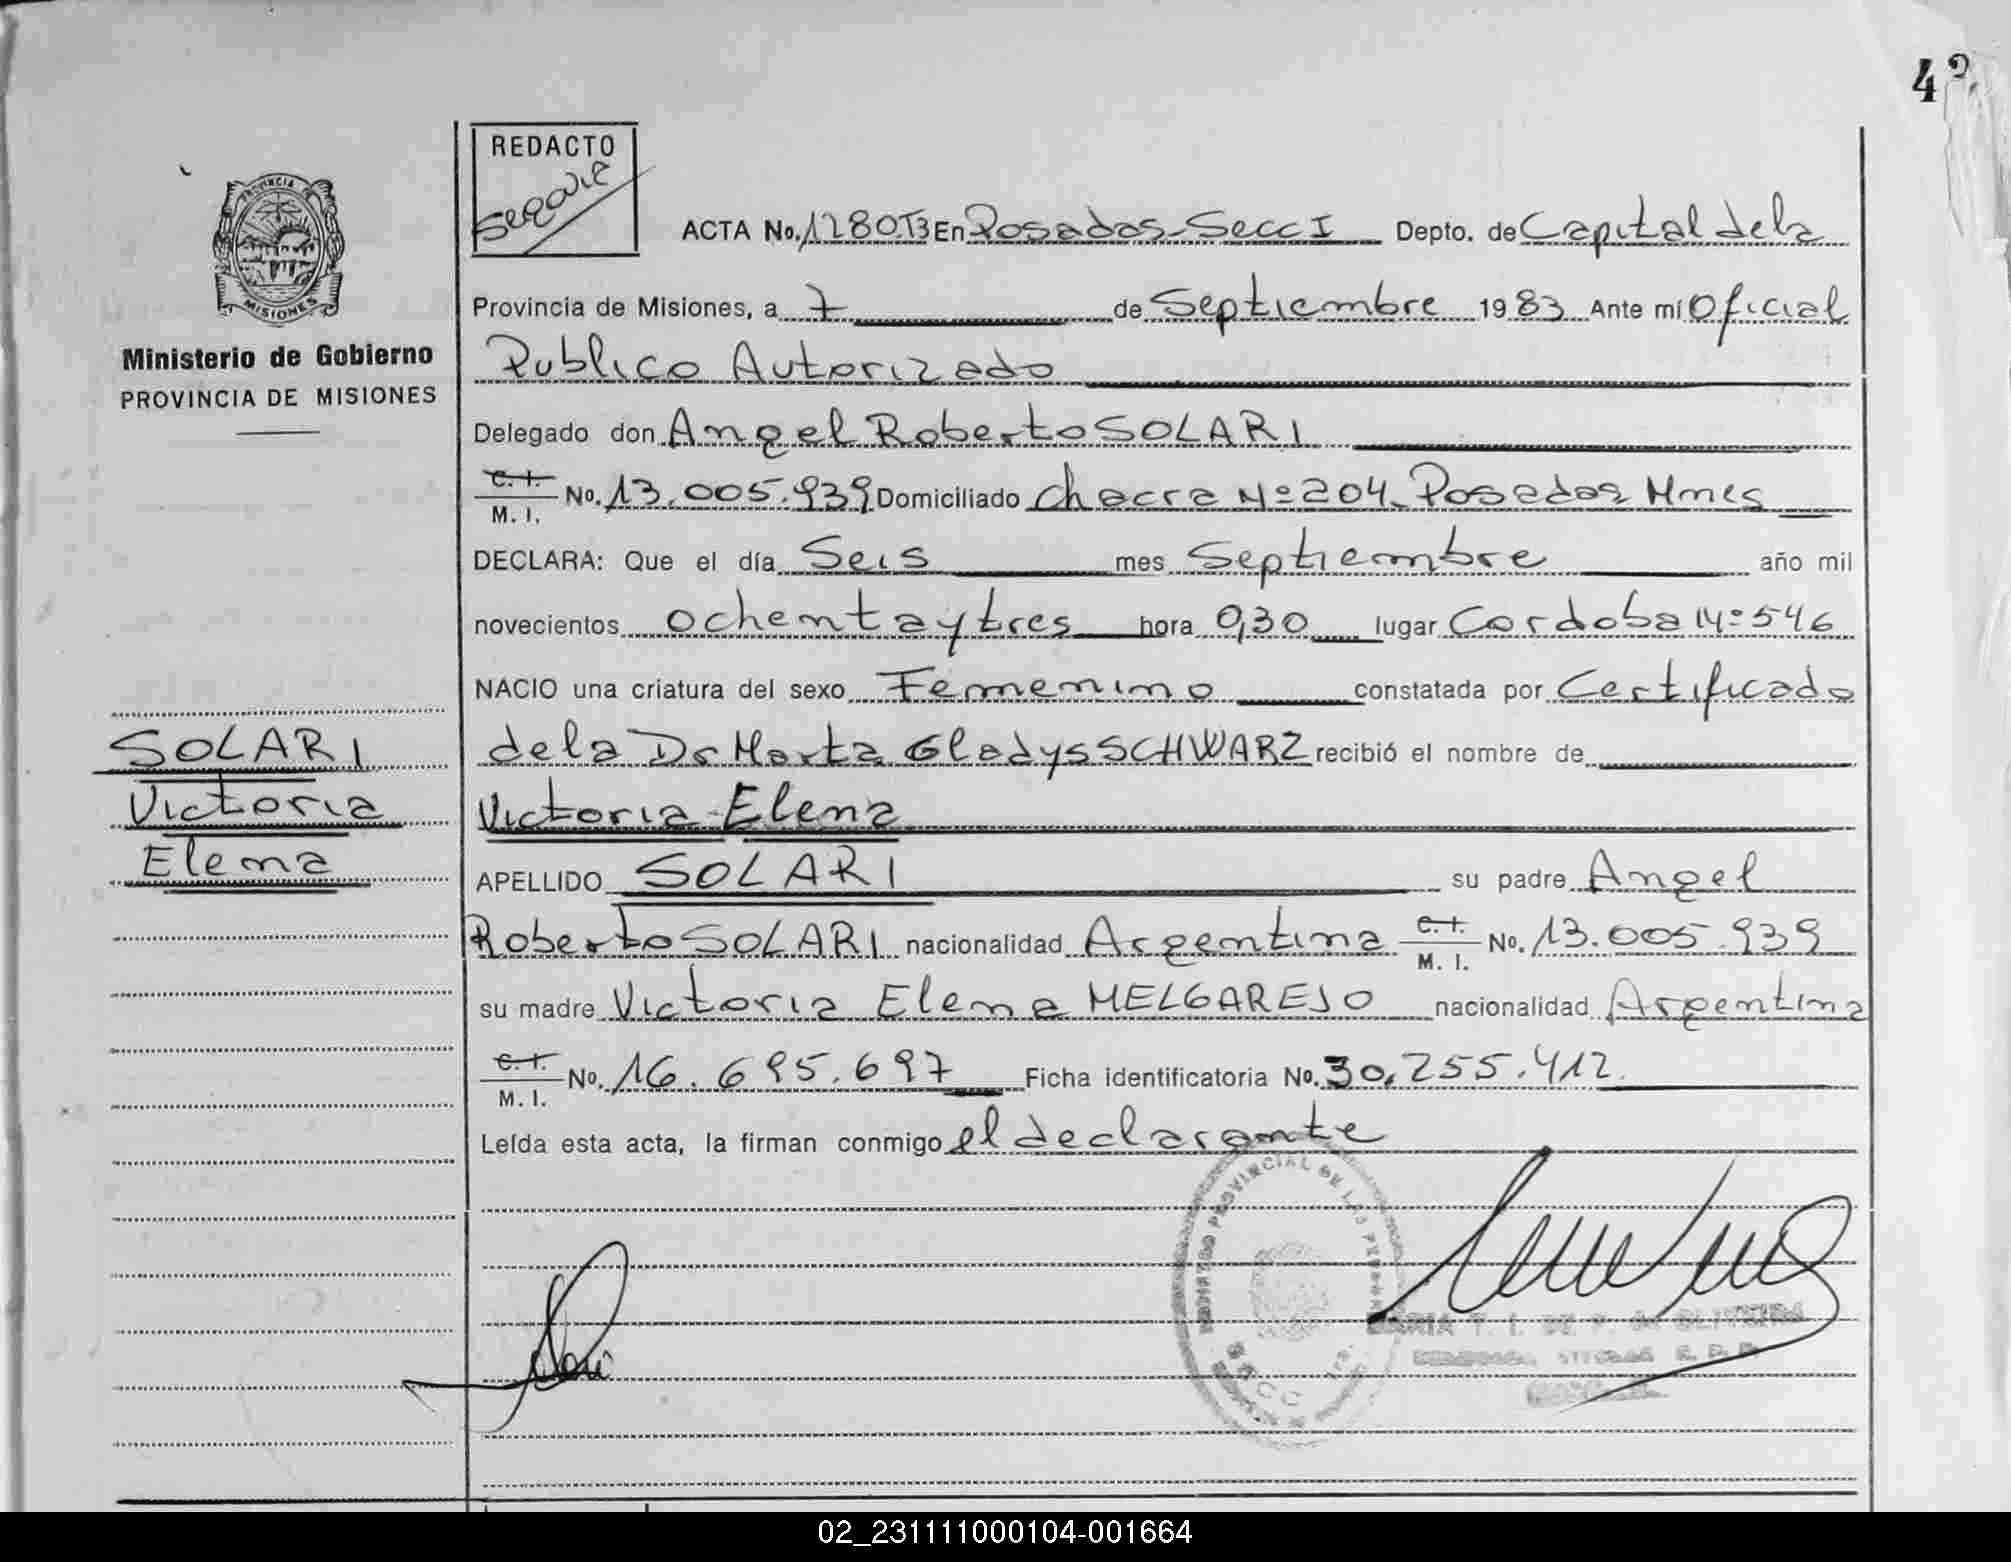 4
REDACTO
PROVINCIA DE
MISIONES
Ministerio de Gobierno
PROVINCIA DE MISIONES
ACTA No. 1280 T3 En Posadas-Secc I Depto. de Capital de la
Provincia de Misiones, a 7 de Septiembre 1983 Ante mí Oficial
Publico Autorizado
Delegado don Angel Roberto SOLARI
C.I. M.I. No. 13.005.939 Domiciliado Chacra Nº 204. Posadas Mnes
DECLARA: Que el día Seis mes Septiembre año mil
novecientos ochenta y tres hora 0,30 lugar Cordoba Nº 546
NACIO una criatura del sexo Femenino constatada por Certificado
de la Dr Marta Gladys SCHWARZ recibió el nombre de
Victoria Elena
APELLIDO SOLARI su padre Angel
Roberto SOLARI nacionalidad Argentina C.I. M.I. No. 13.005.939
su madre Victoria Elena MELGAREJO nacionalidad Argentina
C.I. M.I. No. 16.695.697 Ficha identificatoria No. 30.255.412.
Leída esta acta, la firman conmigo el declarante
SOLARI
Victoria
Elena
REGISTRO PROVINCIAL DE LAS PERSONAS
MARIA T. I. DE P. de OLIVEIRA
02_231111000104-001664